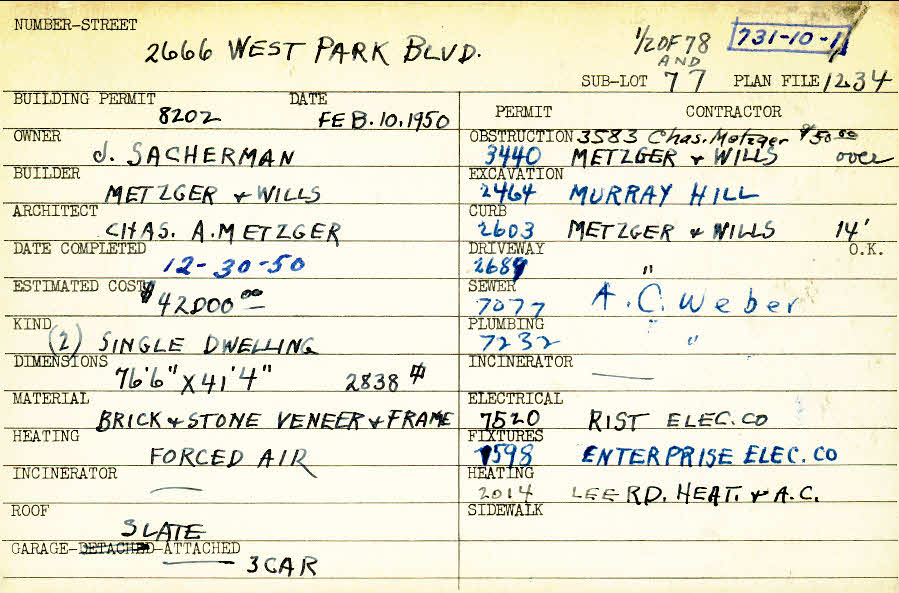 NUMBER-STREET
2666 WEST PARK BLVD.
1/2 OF 78
731-10-1
AND
SUB-LOT 77 PLAN FILE 1234
BUILDING PERMIT DATE
8202 FEB. 10, 1950
PERMIT CONTRACTOR
OWNER
J. SACHERMAN
OBSTRUCTION 3583 Chas. Metzger $50.00
3440 METZGER & WILLS over
BUILDER
METZGER & WILLS
EXCAVATION
2464 MURRAY HILL
ARCHITECT
CHAS. A. METZGER
CURB
2603 METZGER & WILLS 14'
DATE COMPLETED
12-30-50
DRIVEWAY O.K.
2689 "
ESTIMATED COST
$42000 00
SEWER
7077 A. C. Weber
KIND
(2) SINGLE DWELLING
PLUMBING
7232 "
DIMENSIONS
76'6" X 41'4" 2838 #
INCINERATOR
MATERIAL
BRICK & STONE VENEER & FRAME
ELECTRICAL
7520 RIST ELEC. CO
HEATING
FORCED AIR
FIXTURES
7598 ENTERPRISE ELEC. CO
INCINERATOR
HEATING
2014 LEE RD. HEAT. & A.C.
ROOF
SLATE
SIDEWALK
GARAGE-DETACHED-ATTACHED
3 CAR